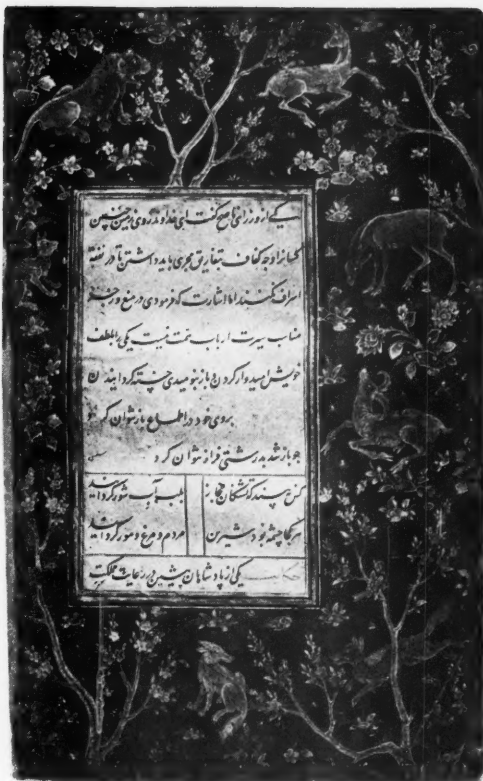 یکی از وزرای ناصح گفت ای خداوند روی زمین چنین
کسانرا وجه کفاف بتفاریق مجری باید داشتن تا در نفقه
اسراف نکنند اما اشارت که فرمودی در منع و زجر
مناسب سیرت ارباب همت نیست یکی را بلطف
خویش امیدوار کردن و باز بنومیدی خسته گردانیدن
بروی خود در اطماع باز نتوان کرد
چو باز شد بدرشتی فراز نتوان کرد
کس نبیند که تشنگان حجاز بلب آب شور گرد آیند
هر کجا چشمه بود شیرین مردم و مرغ و مور گرد آیند
یکی از پادشاهان پیشین در رعایت مملکت